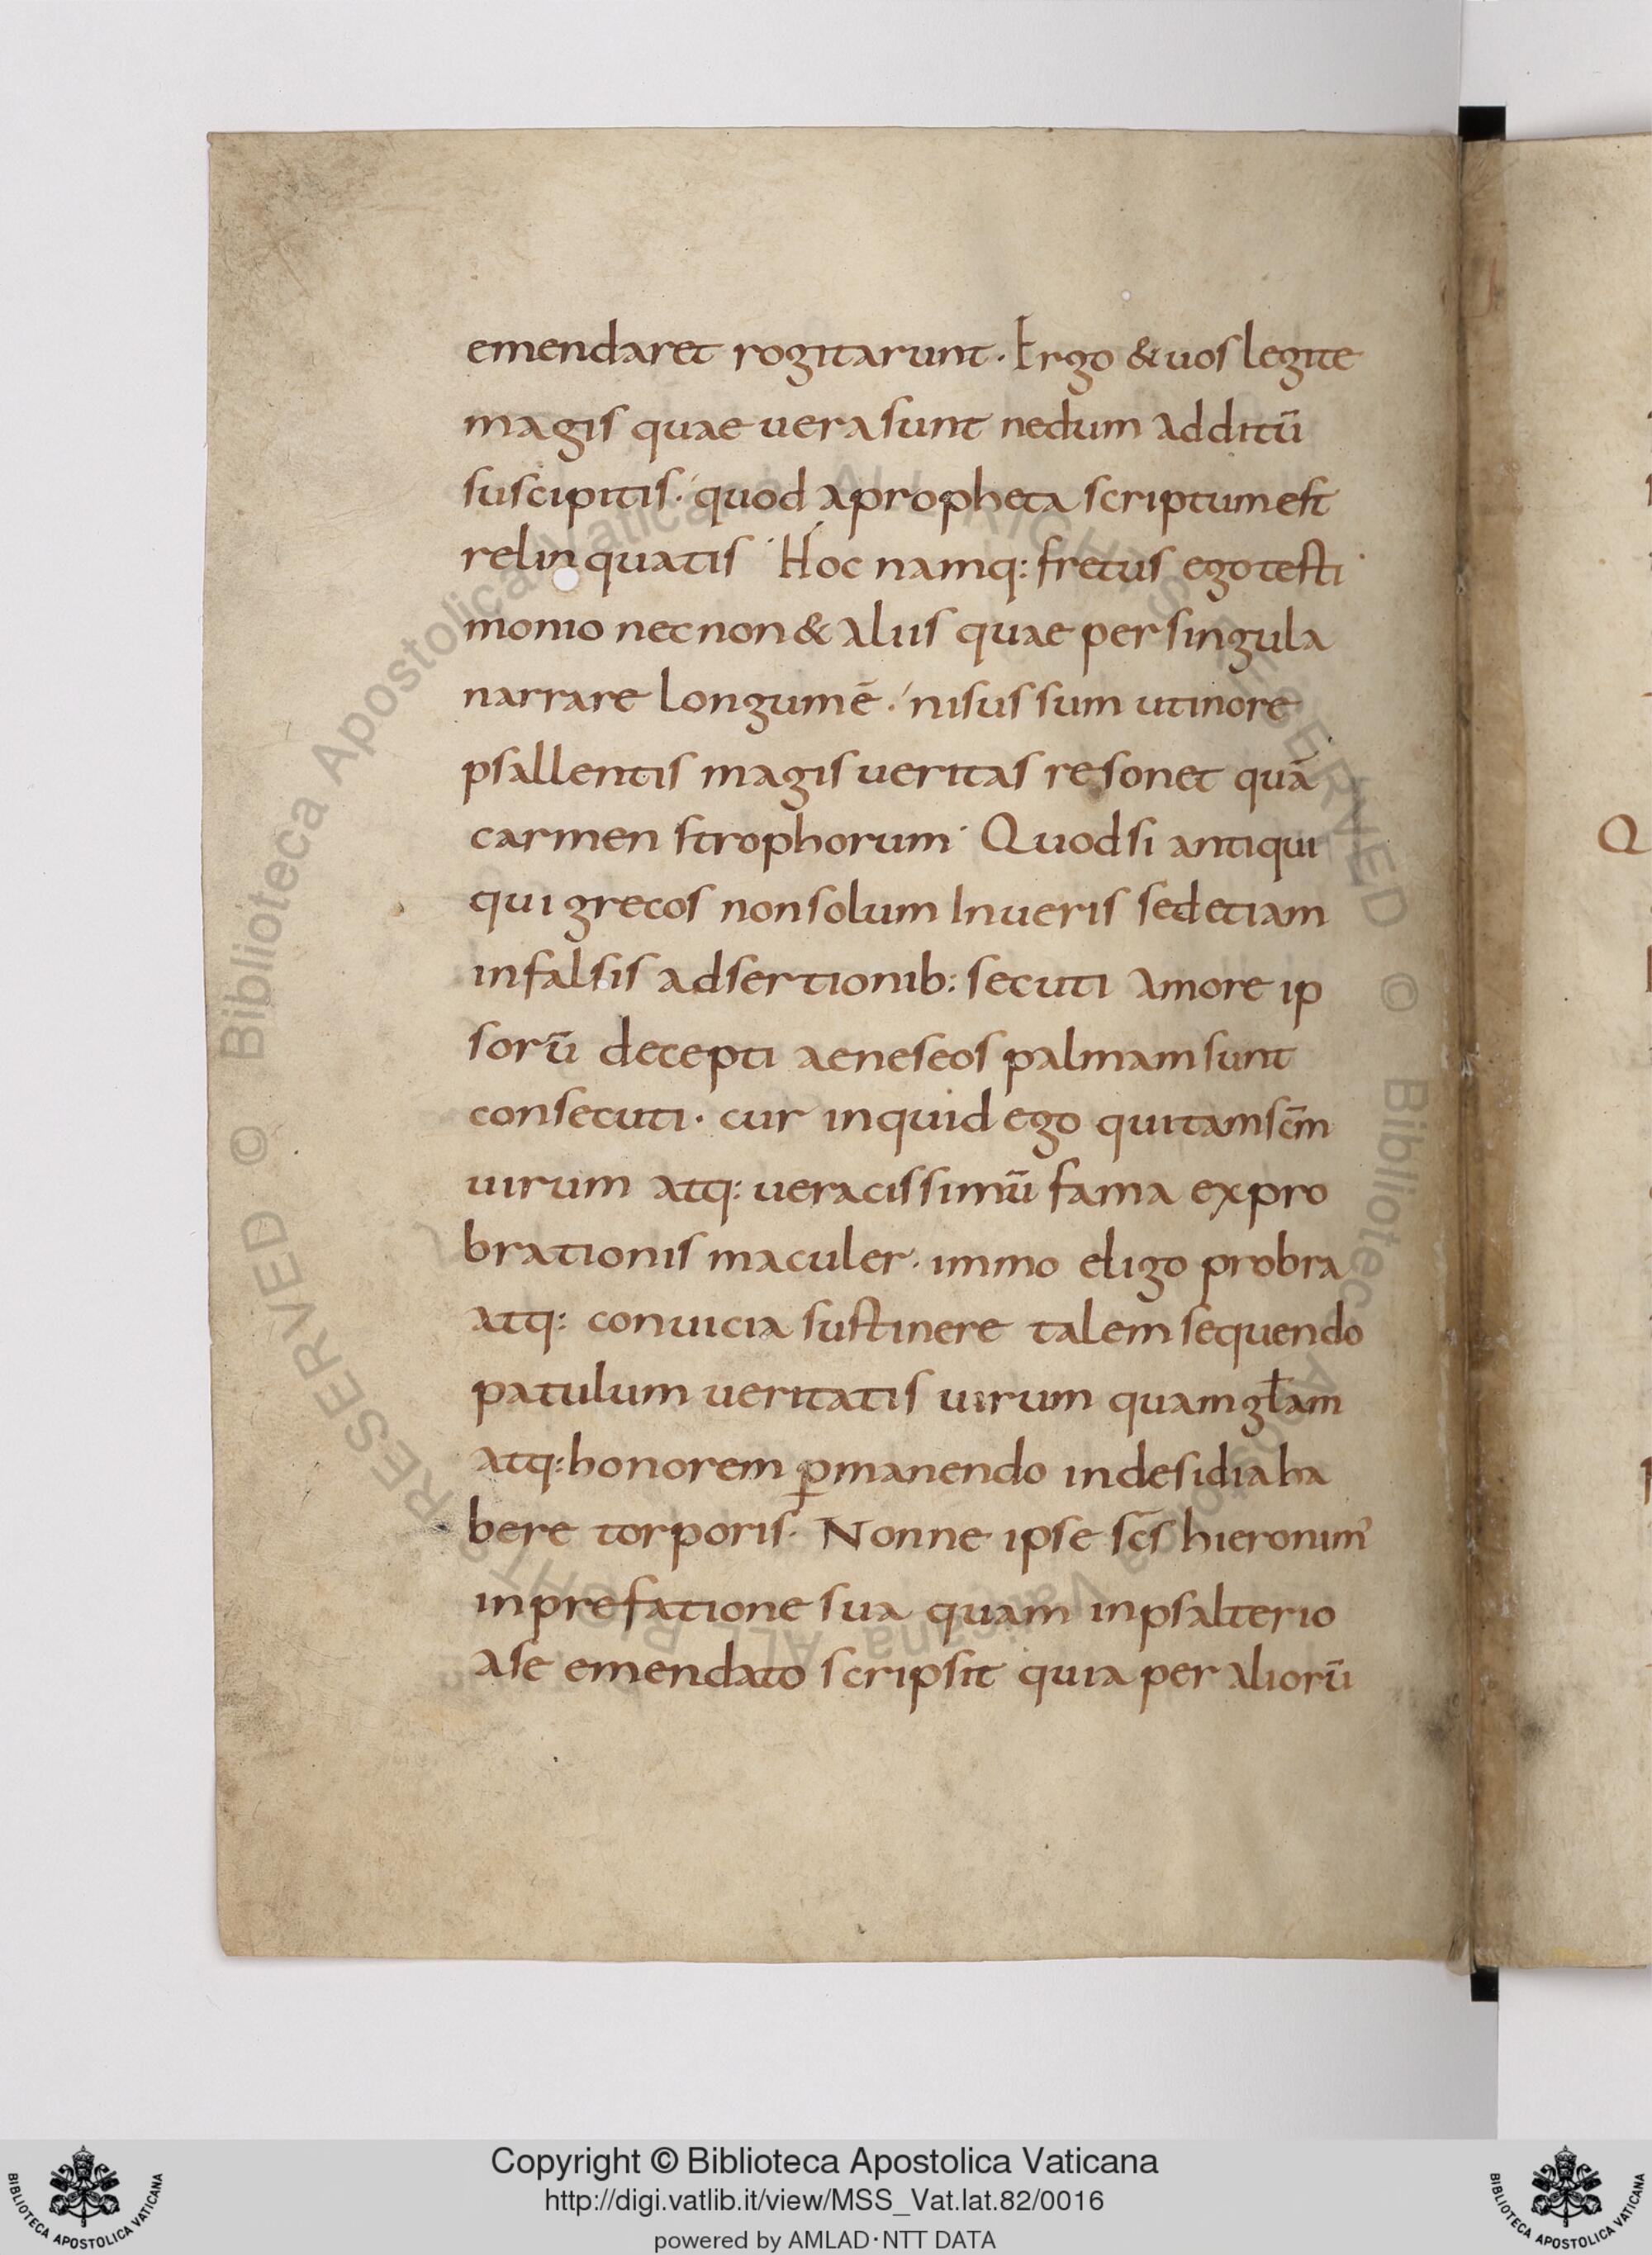 emendaret rogitarunt. Ergo & uos legite
magis quae uera sunt nedum additū
suscipitis. quod a propheta scriptum est
relinquatis. Hoc namq: fretus ego testi
monio nec non & aliis quae per singula
narrare longum ē. nisus sum ut in ore
psallentis magis ueritas resonet quā
carmen strophorum. Quod si antiqui
qui grecos non solum In ueris sed etiam
in falsis adsertionib: secuti amore ip
sorū decepti aeneseos palmam sunt
consecuti. cur inquid ego qui tam sc̄m
uirum atq: ueracissimū fama expro
brationis maculer. immo eligo probra
atq: conuicia sustinere talem sequendo
patulum ueritatis uirum quam głam
atq: honorem ꝑmanendo in desidia ha
bere torporis. Nonne ipse sc̄s hieronim'
in prefatione sua quam in psalterio
a se emendato scripsit quia per aliorū
Q
© Biblioteca Apostolica Vaticana ALL RIGHTS RESERVED
© Biblioteca Apostolica Vaticana ALL RIGHTS RESERVED
Copyright © Biblioteca Apostolica Vaticana
http://digi.vatlib.it/view/MSS_Vat.lat.82/0016
powered by AMLAD·NTT DATA
BIBLIOTECA APOSTOLICA VATICANA
BIBLIOTECA APOSTOLICA VATICANA